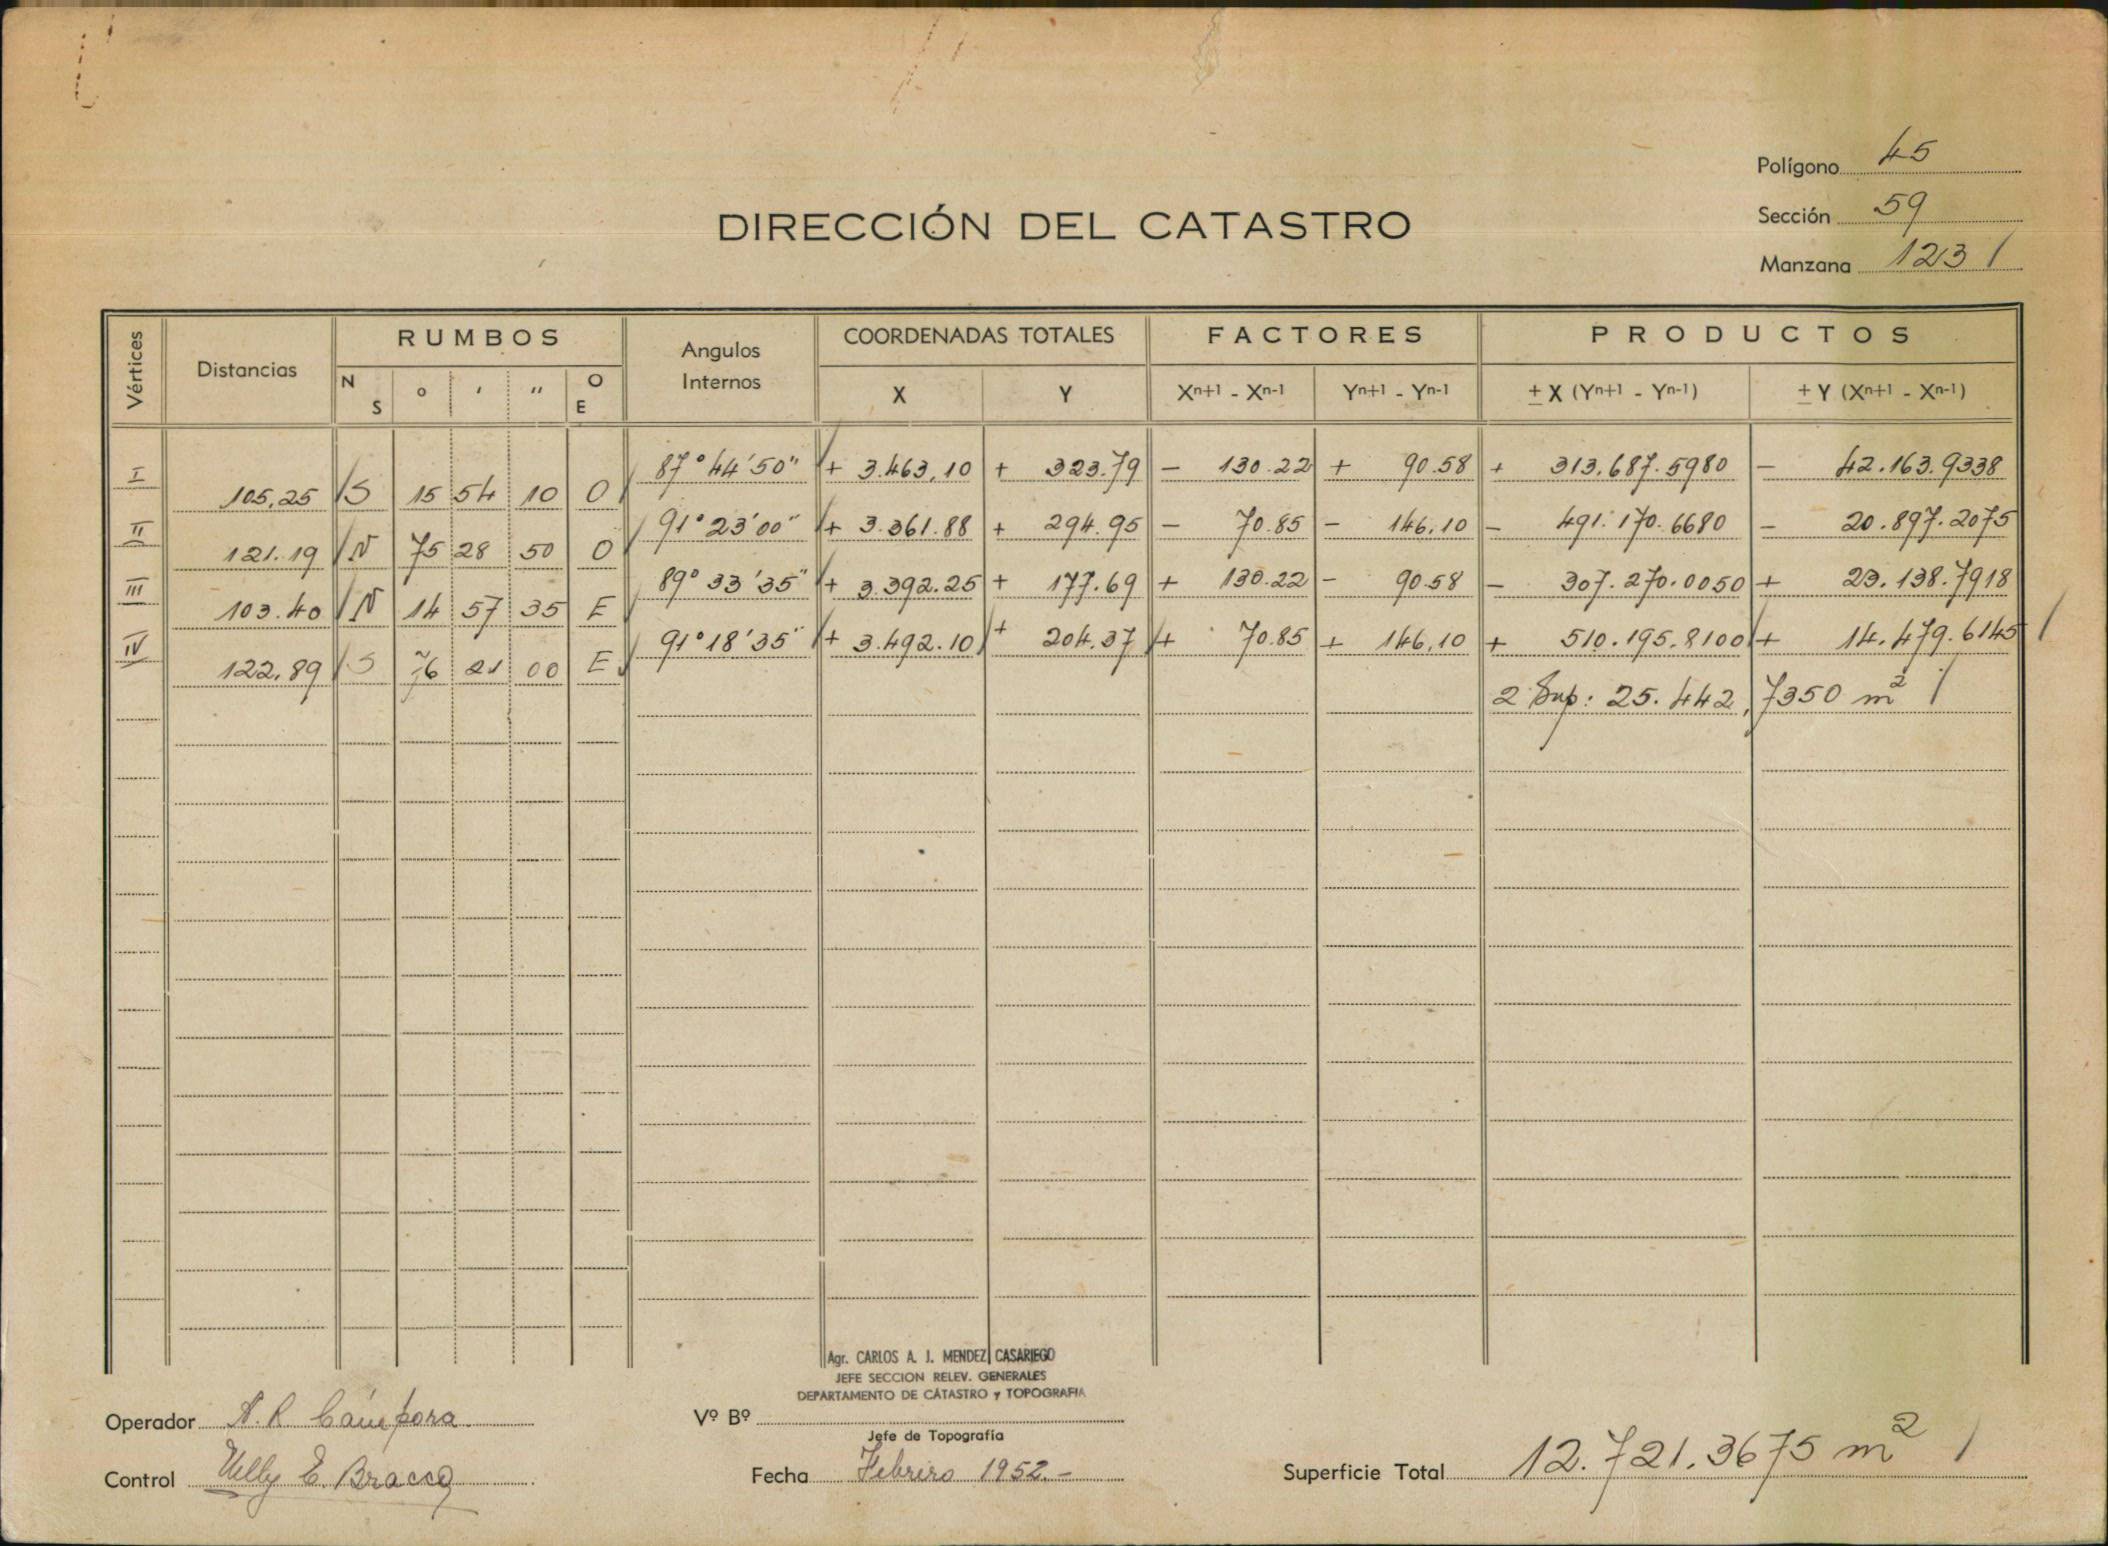 Polígono 45
Sección 59
Manzana 123 /
DIRECCIÓN DEL CATASTRO
Vértices Distancias RUMBOS Angulos Internos COORDENADAS TOTALES FACTORES PRODUCTOS
N S ° ' " O E X Y Xn+1 - Xn-1 Yn+1 - Yn-1 ± X (Yn+1 - Yn-1) ± Y (Xn+1 - Xn-1)
I 87° 44' 50" + 3.463,10 + 323.79 - 130.22 + 90.58 + 313.687.5980 - 42.163.9338
105,25 S 15 54 10 O
II 91° 23' 00" + 3.361.88 + 294.95 - 70.85 - 146,10 - 491.170.6680 - 20.897.2075
121.19 N 75 28 50 O
III 89° 33' 35" + 3.392.25 + 177.69 + 130.22 - 90.58 - 307.270.0050 + 23.138.7918
103.40 N 14 57 35 E
IV 91° 18' 35" + 3.492.10 + 204.37 + 70.85 + 146,10 + 510.195.8100 + 14.479.6145 /
122,89 S 76 21 00 E
2 Sup: 25.442,7350 m2 /
Agr. CARLOS A. J. MENDEZ CASARIEGO
JEFE SECCION RELEV. GENERALES
DEPARTAMENTO DE CATASTRO y TOPOGRAFIA
Operador A. R Cámpora.
Vº Bº
Jefe de Topografía
Control Nelly E. Bracco
Fecha Febrero 1952.-
Superficie Total 12.721.3675 m2 /